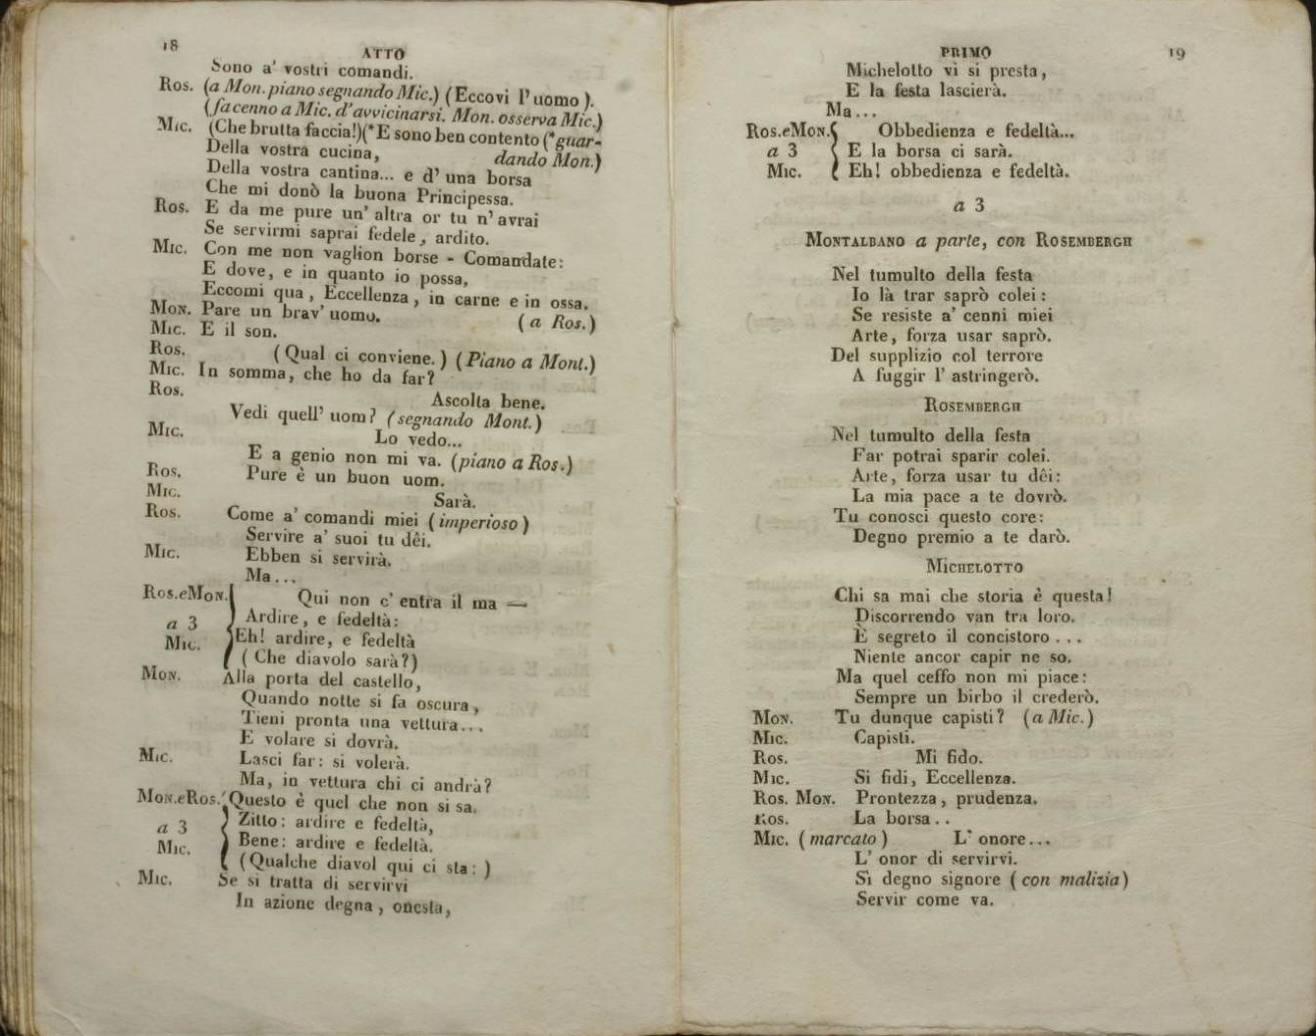 18
ATTO
Sono a' vostri comandi.
Ros. (a Mon. piano segnando Mic.) (Eccovi l'uomo).
(facenno a Mic. d'avvicinarsi. Mon. osserva Mic.)
Mic. (Che brutta faccia!)(*E sono ben contento (*guar-
Della vostra cucina, dando Mon.)
Della vostra cantina... e d' una borsa
Che mi donò la buona Principessa.
Ros. E da me pure un' altra or tu n' avrai
Se servirmi saprai fedele, ardito.
Mic. Con me non vaglion borse - Comandate:
E dove, e in quanto io possa,
Eccomi qua, Eccellenza, in carne e in ossa.
Mon. Pare un brav' uomo. (a Ros.)
Mic. E il son.
Ros. (Qual ci conviene.) (Piano a Mont.)
Mic. In somma, che ho da far?
Ros. Ascolta bene.
Vedi quell' uom? (segnando Mont.)
Mic. Lo vedo...
E a genio non mi va. (piano a Ros.)
Ros. Pure è un buon uom.
Mic. Sarà.
Ros. Come a' comandi miei (imperioso)
Servire a' suoi tu dêi.
Mic. Ebben si servirà.
Ma...
Ros. e Mon. Qui non c' entra il ma —
a 3 Ardire, e fedeltà:
Mic. Eh! ardire, e fedeltà
(Che diavolo sarà?)
Mon. Alla porta del castello,
Quando notte si fa oscura,
Tieni pronta una vettura...
E volare si dovrà.
Mic. Lasci far: si volerà.
Ma, in vettura chi ci andrà?
Mon. e Ros. Questo è quel che non si sa.
Zitto: ardire e fedeltà,
a 3
Mic. Bene: ardire e fedeltà.
(Qualche diavol qui ci sta:)
Mic. Se si tratta di servirvi
In azione degna, onesta,
PRIMO
19
Michelotto vi si presta,
E la festa lascierà.
Ma...
Ros. e Mon. Obbedienza e fedeltà...
a 3 E la borsa ci sarà.
Mic. Eh! obbedienza e fedeltà.
a 3
Montalbano a parte, con Rosembergh
Nel tumulto della festa
Io là trar saprò colei:
Se resiste a' cenni miei
Arte, forza usar saprò.
Del supplizio col terrore
A fuggir l' astringerò.
Rosembergh
Nel tumulto della festa
Far potrai sparir colei.
Arte, forza usar tu dêi:
La mia pace a te dovrò.
Tu conosci questo core:
Degno premio a te darò.
Michelotto
Chi sa mai che storia è questa!
Discorrendo van tra loro.
È segreto il concistoro ...
Niente ancor capir ne so.
Ma quel ceffo non mi piace:
Sempre un birbo il crederò.
Mon. Tu dunque capisti? (a Mic.)
Mic. Capisti.
Ros. Mi fido.
Mic. Si fidi, Eccellenza.
Ros. Mon. Prontezza, prudenza.
Ros. La borsa..
Mic. (marcato) L' onore...
L' onor di servirvi.
Sì degno signore (con malizia)
Servir come va.